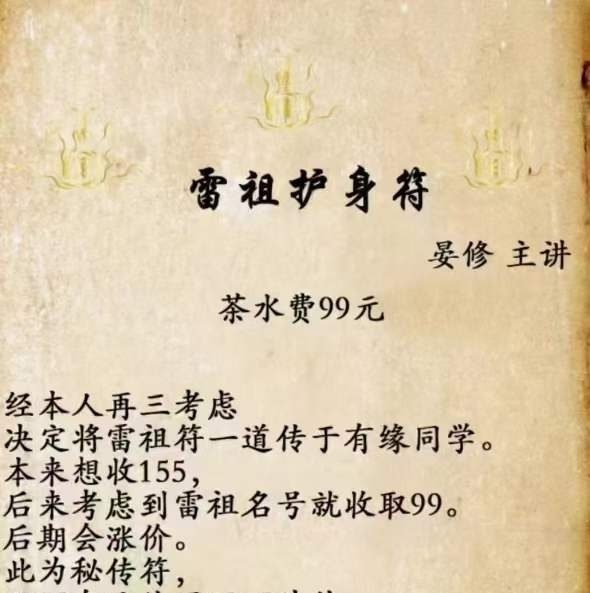 雷祖护身符
晏修 主讲
茶水费99元
经本人再三考虑
决定将雷祖符一道传于有缘同学。
本来想收155，
后来考虑到雷祖名号就收取99。
后期会涨价。
此为秘传符，